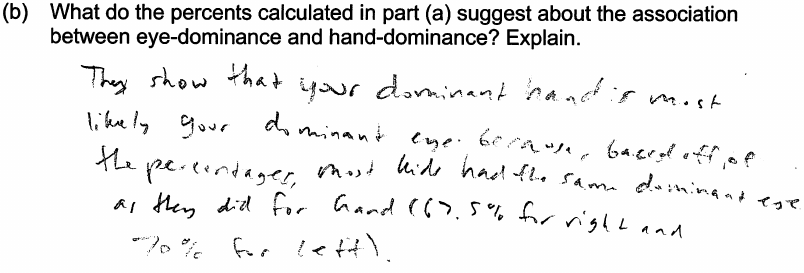 (b) What do the percents calculated in part (a) suggest about the association
between eye-dominance and hand-dominance? Explain.
They show that your dominant hand is most
likely your dominant eye. because, based off of
the percentages, most kids had the same dominant eye
as they did for hand (67.5% for right and
70% for left).